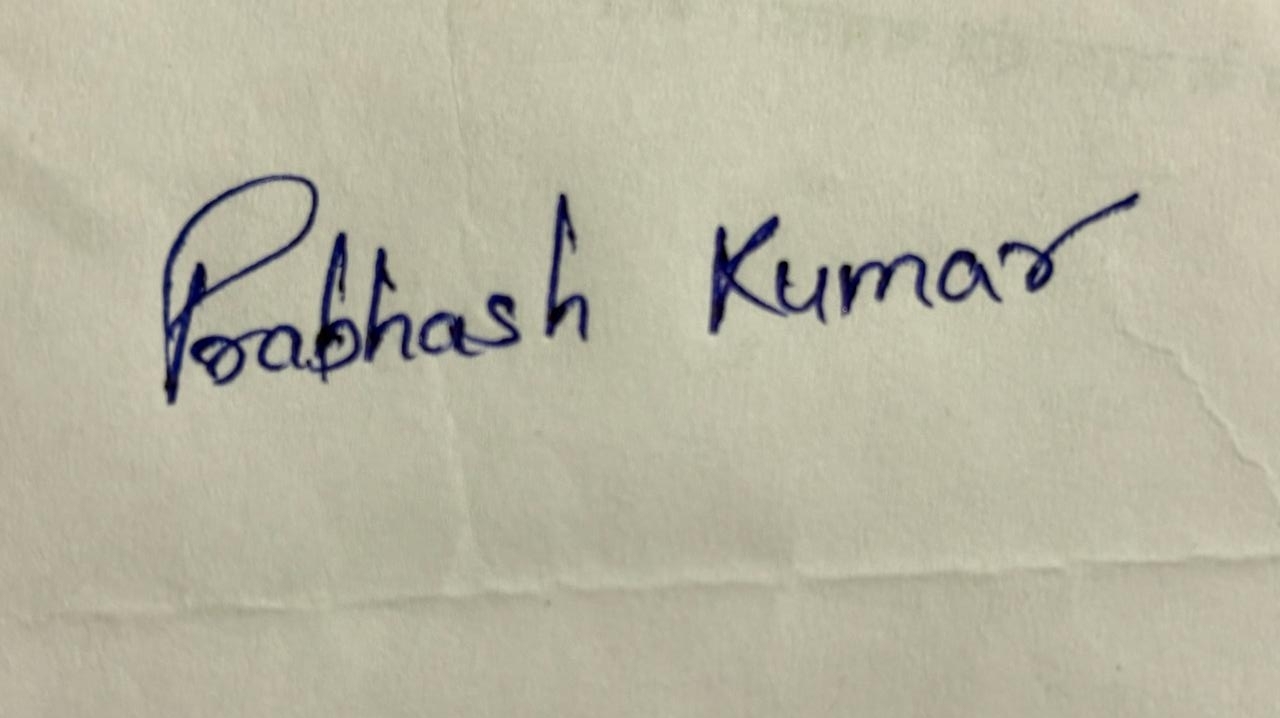 Prabhash Kumar